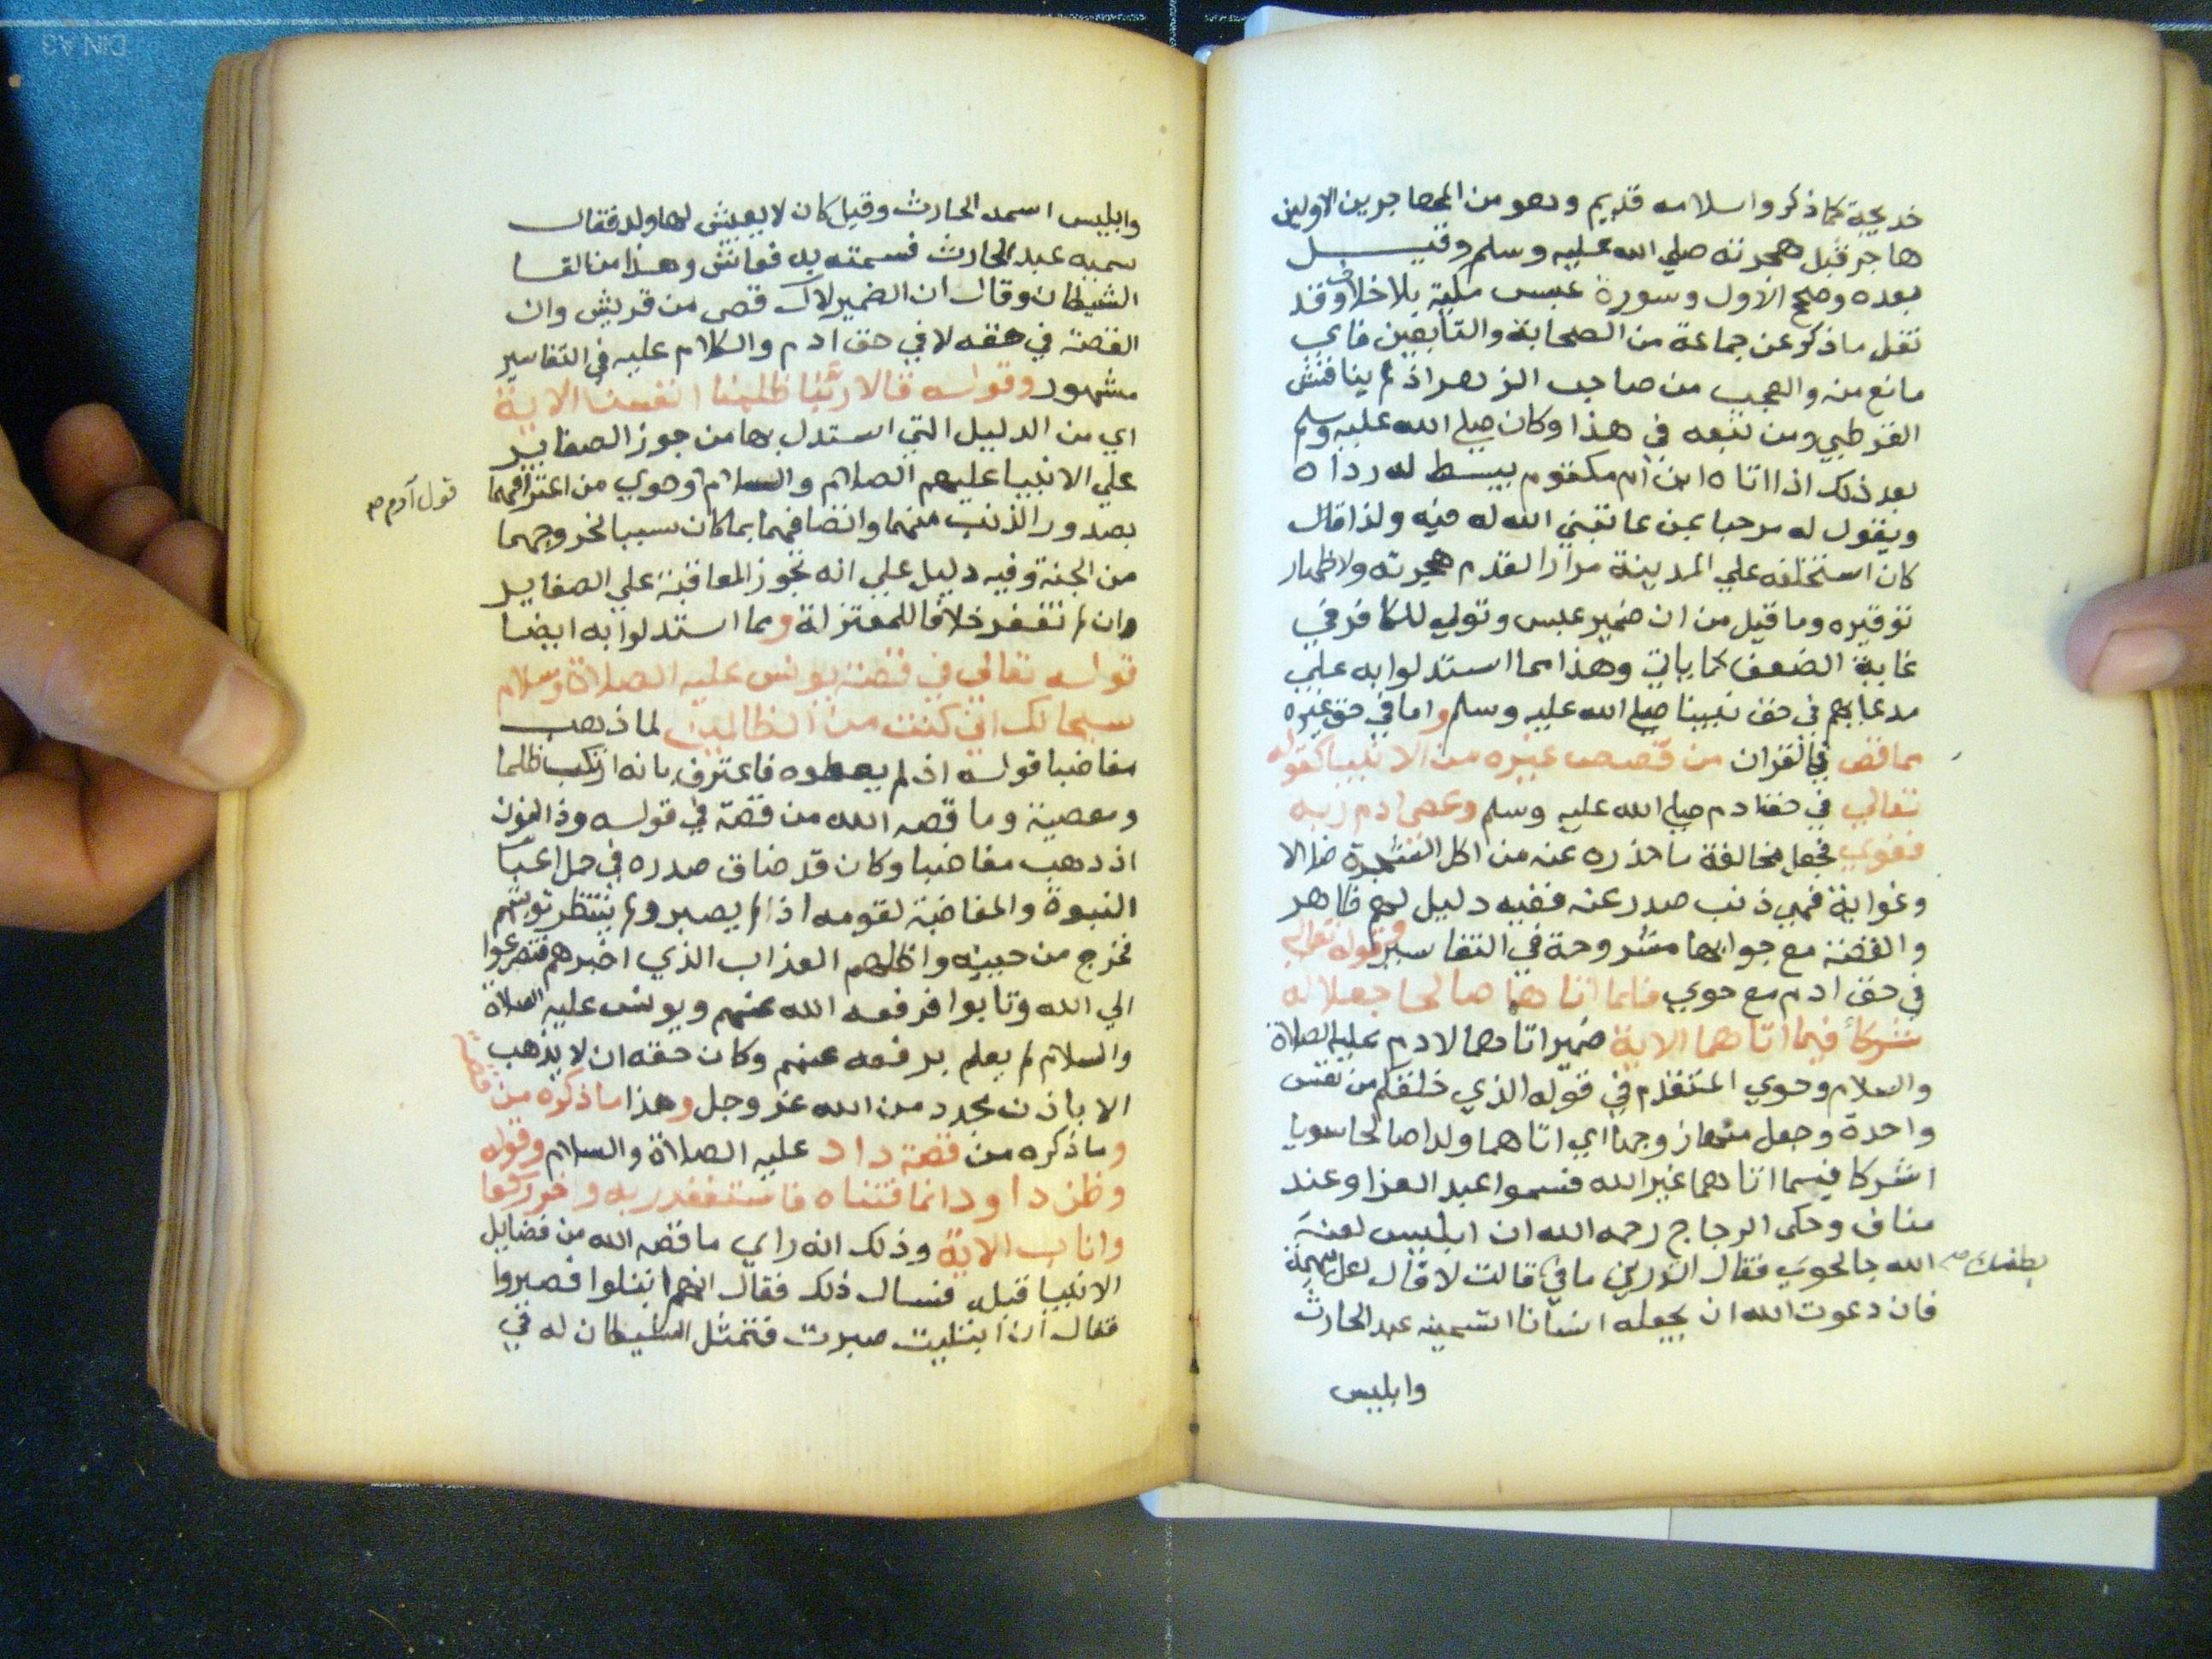 خديجة كما ذكر واسلامه قديم وهو من المهاجرين الاولين
هاجر قبل هجرته صلي الله عليه وسلم وقيل
بعده وصحح الاول وسورة عبس مكية بلا خلاف وقد
نقل ما ذكر عن جماعة من الصحابة والتابعين فاي
مانع منه والعجب من صاحب الزهر اذ لم يناقش
القرطبي ومن تبعه في هذا وكان صلي الله عليه وسلم
بعد ذلك اذا اتاه ابن ام مكتوم يبسط له رداه
ويقول له مرحبا بمن عاتبني الله له فيه ولذا قال
كان استخلفه علي المدينة مرارا لقدم هجرته ولاظهار
توقيره وما قيل من ان ضمير عبس وتولي للكافر في
غاية الضعف كما ياتي وهذا مما استدلوا به علي
مدعاهم في حق نبينا صلي الله عليه وسلم واما في حق غيره
مما قص في القران من قصص غيره من الانبيا كقوله
تعالي في حق ادم صلي الله عليه وسلم وعصي ادم ربه
فغوي فجعل مخالفة ما حذره عنه من اكل الشجرة ضلالا
وغواية فهي ذنب صدر عنه ففيه دليل لهم ظاهر
والقصة مع جوابها مشروحة في التفاسير وقوله تعالي
في حق ادم مع حوي فلما اتاهما صالحا جعلا له
شركا فيما اتاهما الاية ضمير اتاهما لادم عليه الصلاة
والسلام وحوي المتقدم في قوله الذي خلقكم من نفس
واحدة وجعل منها زوجها اي اتاهما ولدا صالحا سويا
اشركا فيما اتاهما غير الله فسموا عبد العزا وعبد
مناف وحكي الزجاج رحمه الله ان ابليس لعنه
الله جا لحوي فقال اتدرين ما في بطنك صح قالت لا قال لعل بهيمة
فان دعوت الله ان يجعله انسانا اتسمينه عبد الحارث
وابليس
وابليس اسمه الحارث وقيل كان لا يعيش لها ولد فقال
سميه عبد الحارث فسمته به فعاش وهذا من القا
الشيطان وقال ان الضمير لال قصي من قريش وان
القصة في حقه لا في حق ادم والكلام عليه في التفاسير
مشهور وقوله قالا ربنا ظلمنا انفسنا الاية
اي من الدليل التي استدل بها من جوز الصغاير
علي الانبيا عليهم الصلاة والسلام قول آدم صح وحوي من اعترافهما
بصدور الذنب منهما واتصافهما بما كان سببا لخروجهما
من الجنة وفيه دليل علي انه تجوز المعاقبة علي الصغاير
وان لم تغفر خلافا للمعتزلة ومما استدلوا به ايضا
قوله تعالي في قصة يونس عليه الصلاة والسلام
سبحانك اني كنت من الظالمين لما ذهب
مغاضبا قوله اذ لم يعطوه فاعترف بانه ارتكب ظلما
ومعصية وما قصه الله من قصة في قوله وذا النون
اذ ذهب مغاضبا وكان قد ضاق صدره في حمل اعبا
النبوة والمغاضبة لقومه اذ لم يصبر ولم ينتظر توبتهم
فخرج من حبيبه واظلهم العذاب الذي اخبرهم فتضرعوا
الي الله وتابوا فرفعه الله عنهم ويونس عليه الصلاة
والسلام لم يعلم برفعه عنهم وكان حقه ان لا يذهب
الا باذن مجدد من الله عز وجل وهذا ما ذكره من قصته
وما ذكره من قصة داد عليه الصلاة والسلام وقوله
وظن داود انما فتناه فاستغفر ربه وخر راكعا
واناب الاية وذلك انه راي ما قصه الله من فضايل
الانبيا قبله فسال ذلك فقال انهم ابتلوا فصبروا
فقال ان ابتليت صبرت فتمثل الشيطان له في